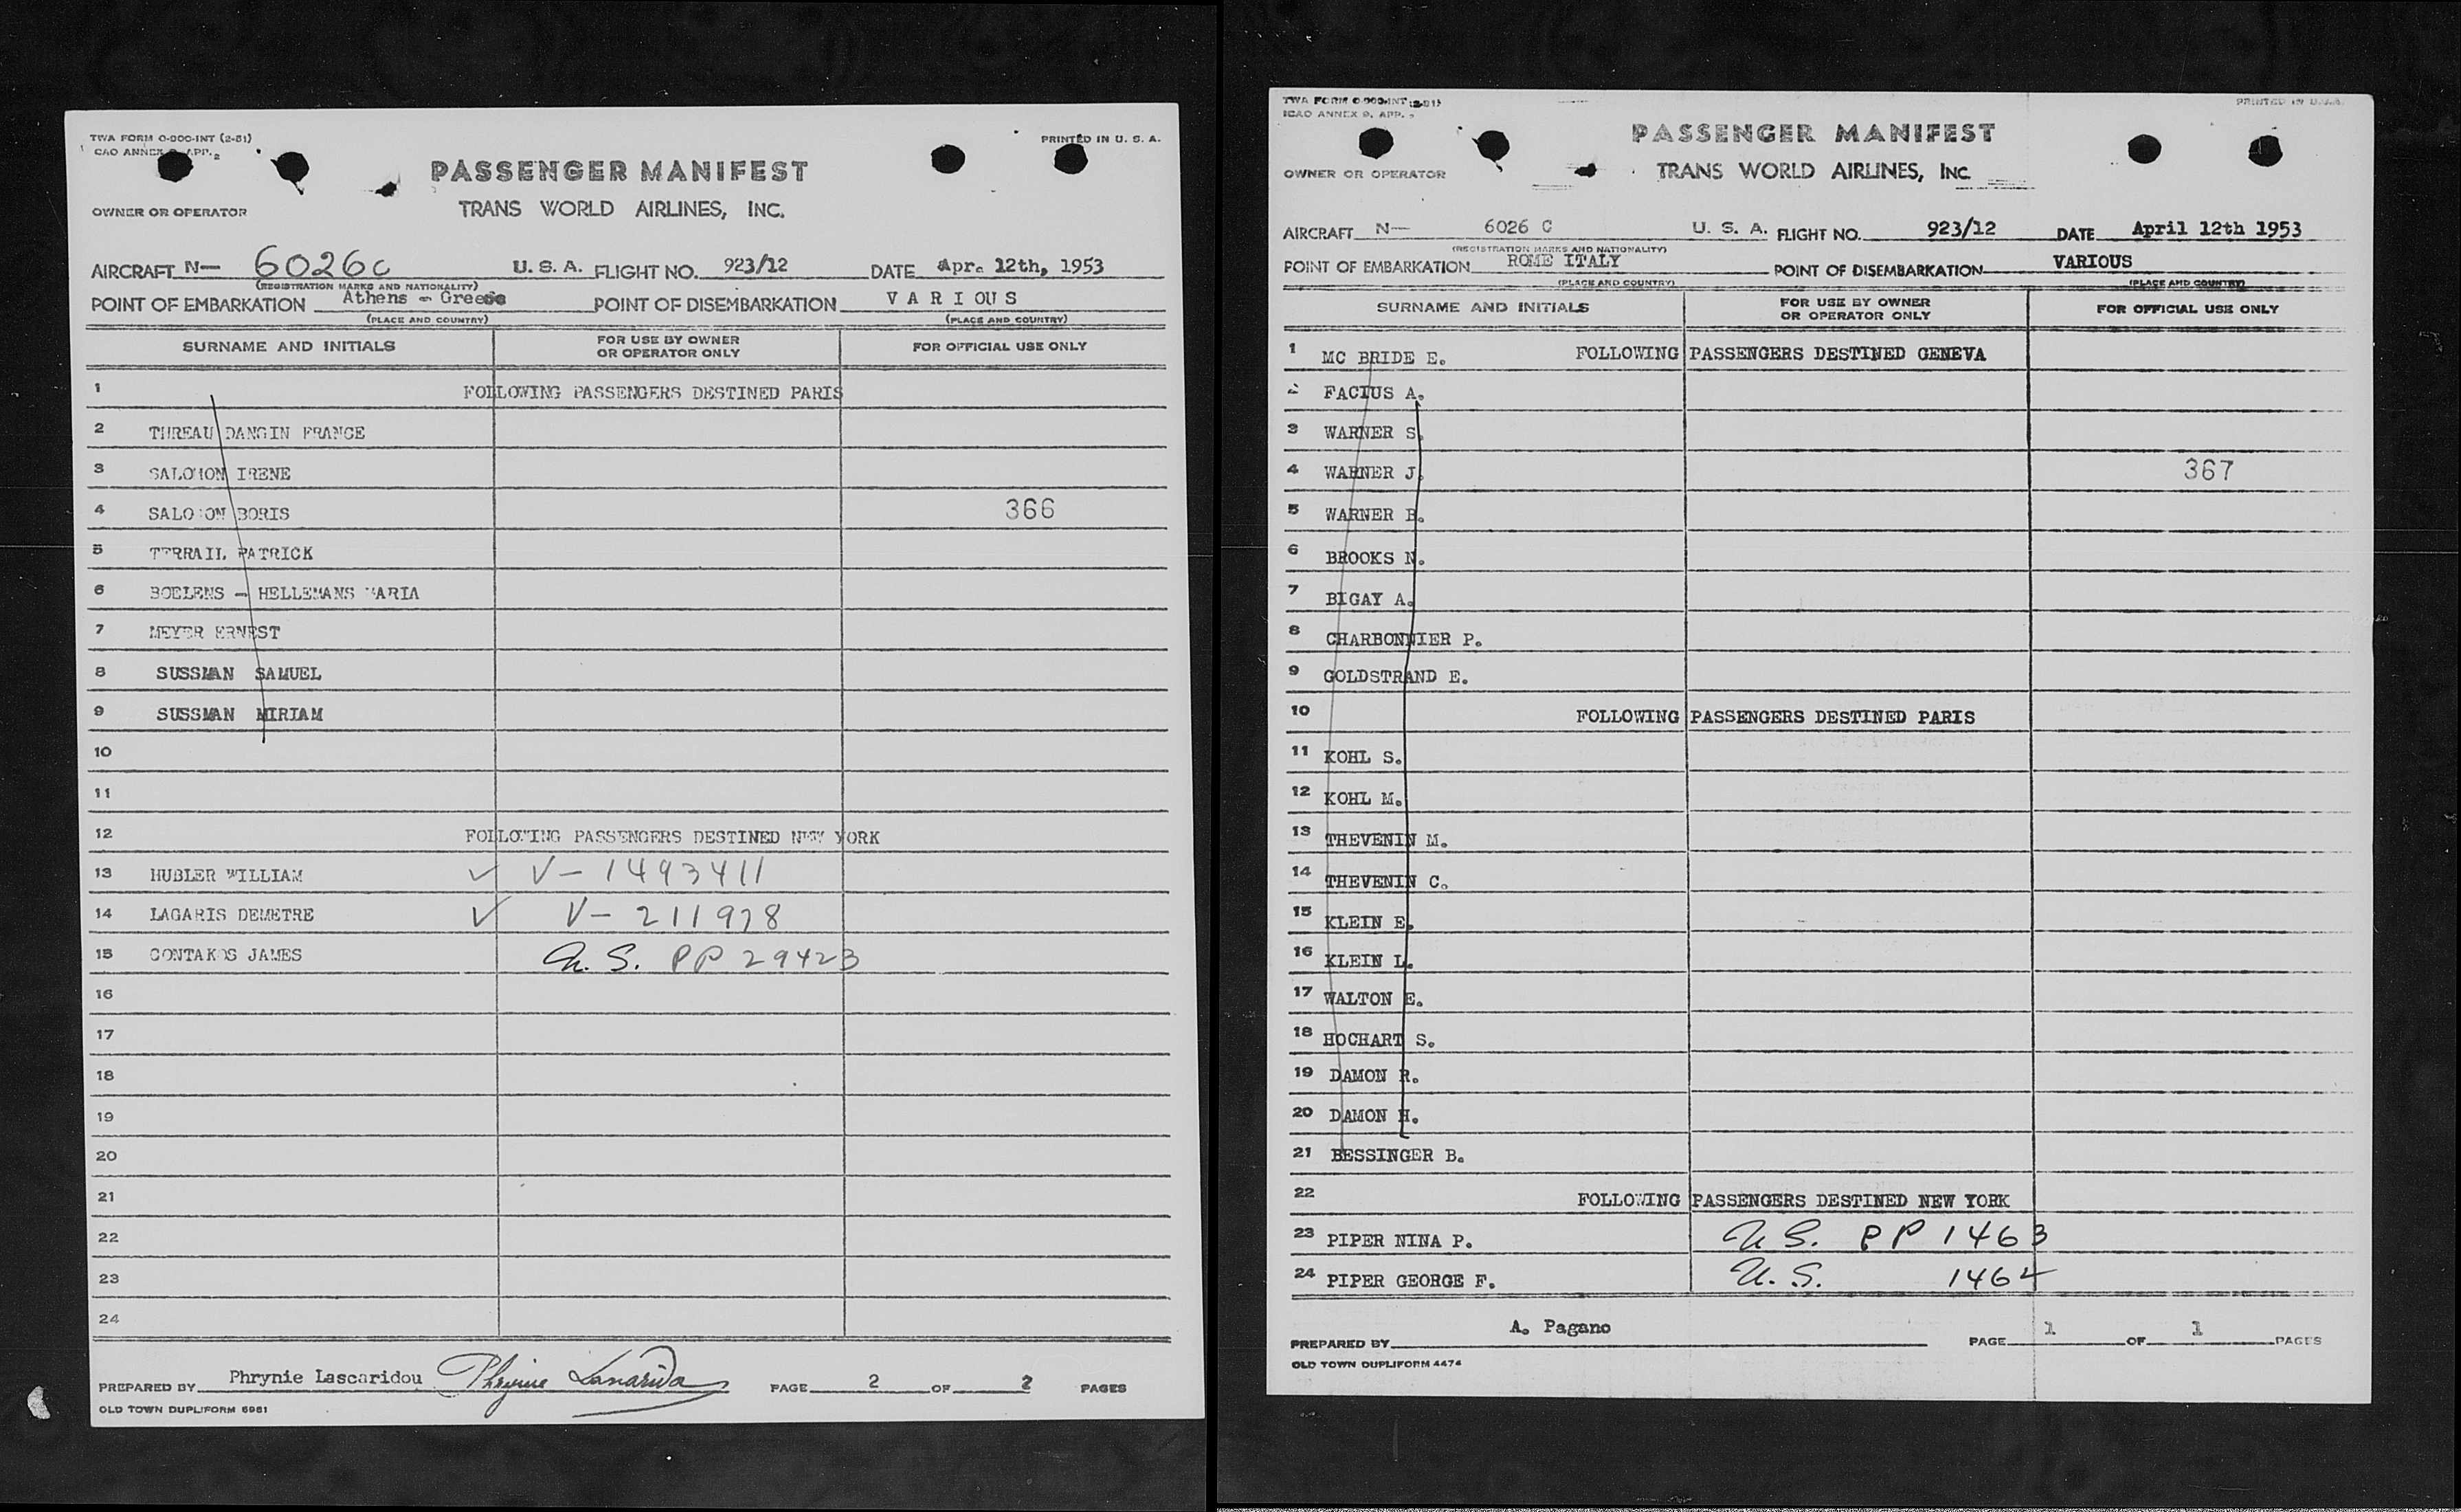 TWA FORM O-900-INT (2-51)
CAO ANNEX 9, APP. 2
PRINTED IN U. S. A.
PASSENGER MANIFEST
OWNER OR OPERATOR
TRANS WORLD AIRLINES, INC.
AIRCRAFT N— 6026c U. S. A. FLIGHT NO. 923/12 DATE Apr. 12th, 1953
(REGISTRATION MARKS AND NATIONALITY)
POINT OF EMBARKATION Athens - Greece POINT OF DISEMBARKATION V A R I OU S
(PLACE AND COUNTRY) (PLACE AND COUNTRY)
SURNAME AND INITIALS FOR USE BY OWNER OR OPERATOR ONLY FOR OFFICIAL USE ONLY
1 FOLLOWING PASSENGERS DESTINED PARIS
2 THREAU DANGIN FRANCE
3 SALOMON IRENE
4 SALOMON BORIS 366
5 TERRAIL PATRICK
6 BOELENS - HELLEMANS MARIA
7 MEYER ERNEST
8 SUSSMAN SAMUEL
9 SUSSMAN MIRIAM
10
11
12 FOLLOWING PASSENGERS DESTINED NEW YORK
13 HUBLER WILLIAM ✓ V- 1493411
14 LAGARIS DEMETRE ✓ V- 211978
15 CONTAKOS JAMES U. S. PP 29423
16
17
18
19
20
21
22
23
24
PREPARED BY Phrynie Lascaridou PAGE 2 OF 2 PAGES
OLD TOWN DUPLIFORM 6981
TWA FORM O-900-INT (2-51)
ICAO ANNEX 9, APP. 2
PRINTED IN U.S.A.
PASSENGER MANIFEST
OWNER OR OPERATOR
TRANS WORLD AIRLINES, INC.
AIRCRAFT N— 6026 C U. S. A. FLIGHT NO. 923/12 DATE April 12th 1953
(REGISTRATION MARKS AND NATIONALITY)
POINT OF EMBARKATION ROME ITALY POINT OF DISEMBARKATION VARIOUS
(PLACE AND COUNTRY) (PLACE AND COUNTRY)
SURNAME AND INITIALS FOR USE BY OWNER OR OPERATOR ONLY FOR OFFICIAL USE ONLY
1 MC BRIDE E. FOLLOWING PASSENGERS DESTINED GENEVA
2 FACIUS A.
3 WARNER S.
4 WARNER J. 367
5 WARNER B.
6 BROOKS N.
7 BIGAY A.
8 CHARBONNIER P.
9 GOLDSTRAND E.
10 FOLLOWING PASSENGERS DESTINED PARIS
11 KOHL S.
12 KOHL M.
13 THEVENIN M.
14 THEVENIN C.
15 KLEIN E.
16 KLEIN L.
17 WALTON E.
18 HOCHART S.
19 DAMON R.
20 DAMON H.
21 BESSINGER B.
22 FOLLOWING PASSENGERS DESTINED NEW YORK
23 PIPER NINA P. U. S. PP 1463
24 PIPER GEORGE F. U. S. 1464
PREPARED BY A. Pagano PAGE 1 OF 1 PAGES
OLD TOWN DUPLIFORM 4474